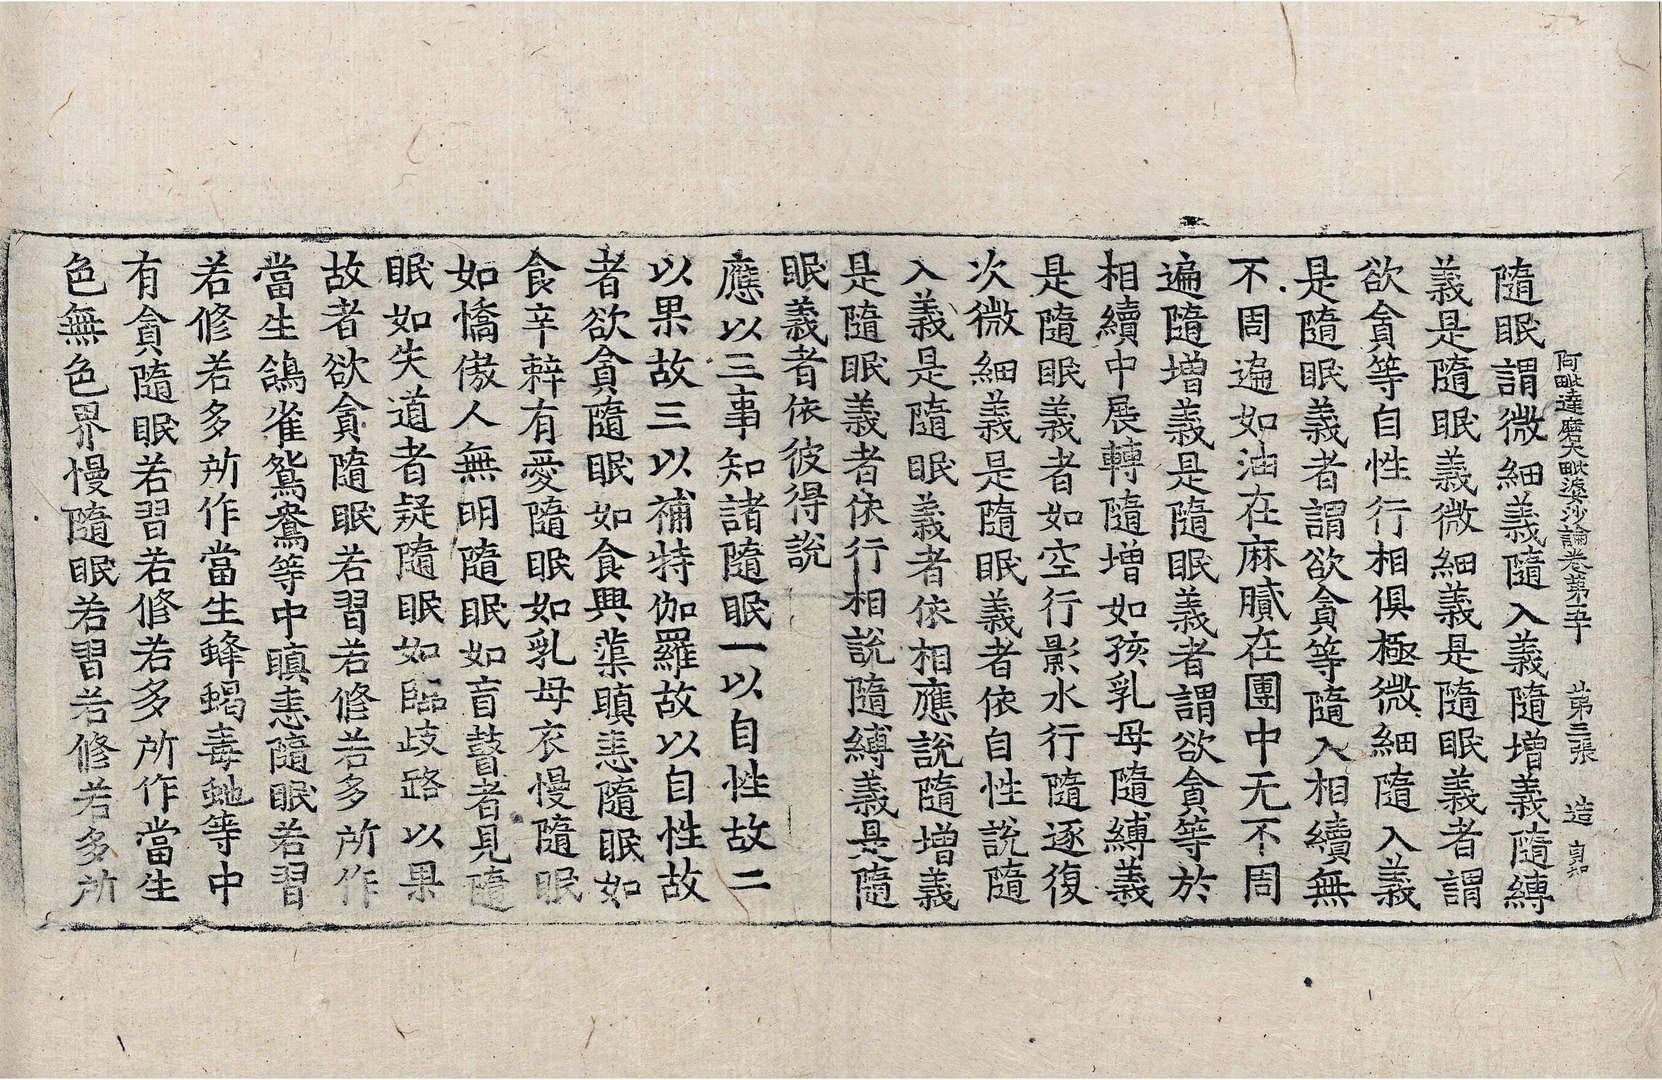 阿毗達磨大毗婆沙論卷第五十 第三張 造
隨眠謂微細義隨入義隨增義隨縛
義是隨眠義微細義是隨眠義者謂
欲貪等自性行相俱極微細隨入義
是隨眠義者謂欲貪等隨入相續無
不周遍如油在麻膩在團中无不周
遍隨增義是隨眠義者謂欲貪等於
相續中展轉隨增如孩乳母隨縛義
是隨眠義者如空行影水行隨逐復
次微細義是隨眠義者依自性說隨
入義是隨眠義者依相應說隨增義
是隨眠義者依行相說隨縛義是隨
眠義者依彼得說
應以三事知諸隨眠一以自性故二
以果故三以補特伽羅故以自性故
者欲貪隨眠如食興蕖瞋恚隨眠如
食辛辢有愛隨眠如乳母衣慢隨眠
如憍傲人無明隨眠如盲瞽者見隨
眠如失道者疑隨眠如臨歧路以果
故者欲貪隨眠若習若修若多所作
當生鴿雀鴛鴦等中瞋恚隨眠若習
若修若多所作當生蜂蝎毒虵等中
有貪隨眠若習若修若多所作當生
色無色界慢隨眠若習若修若多所